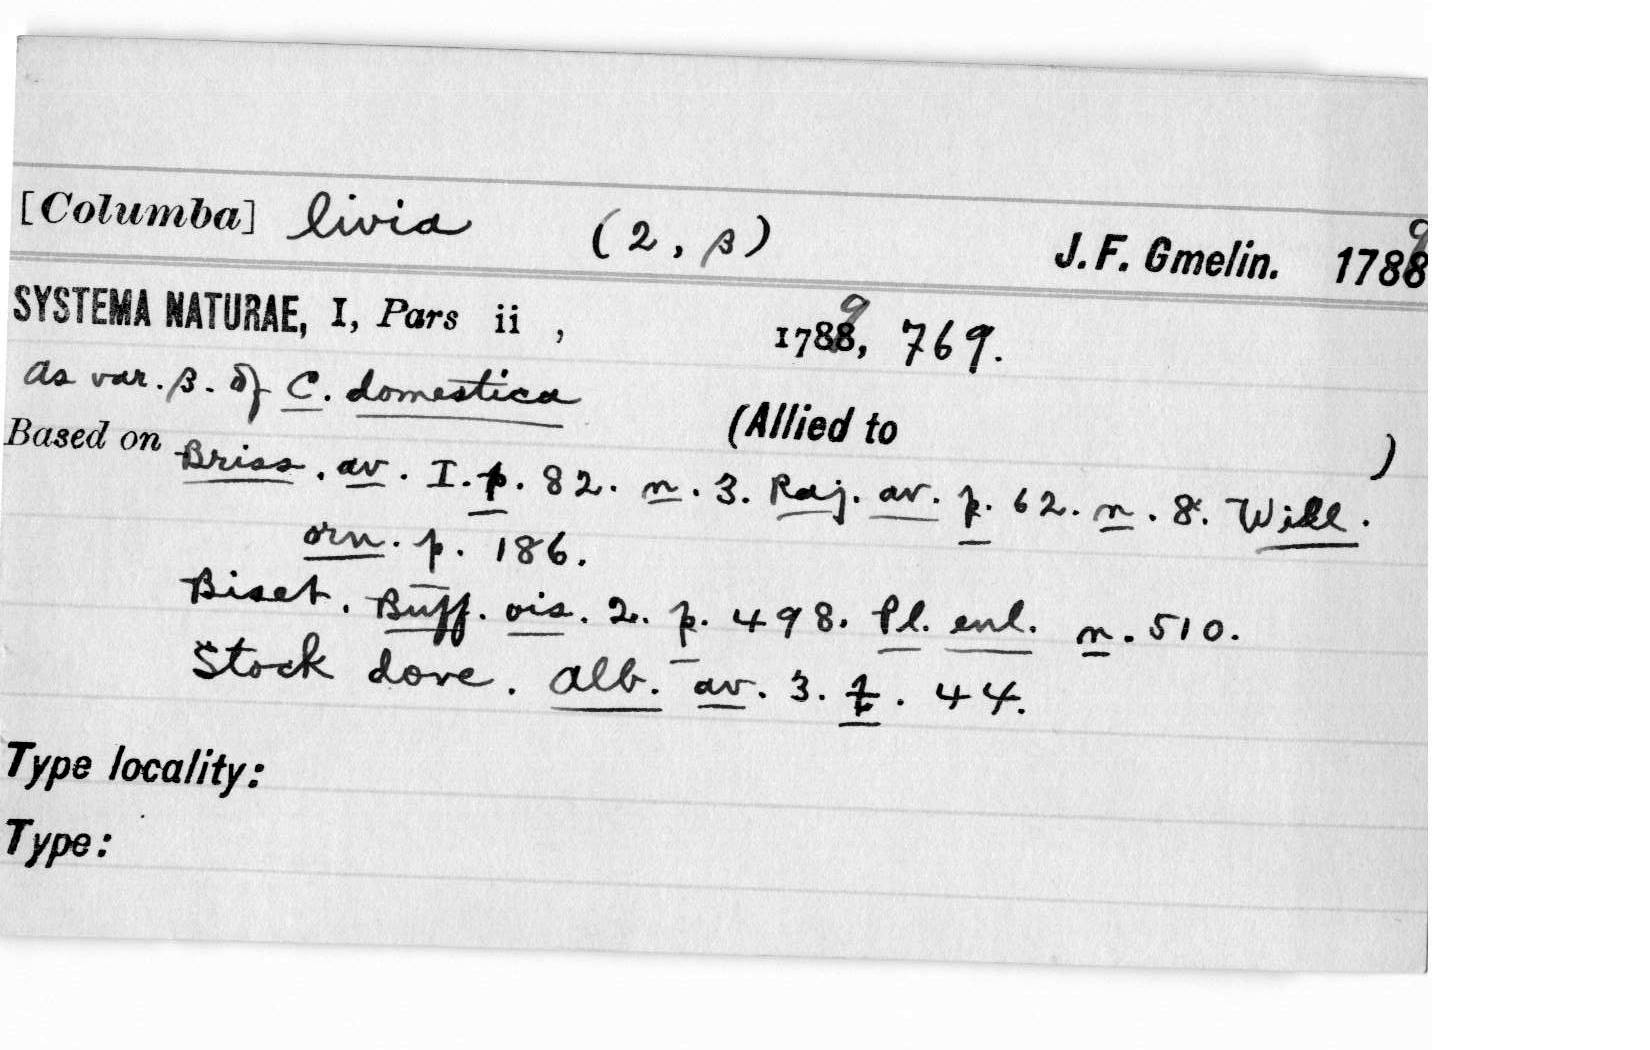 [Columba] livia (2, β) J. F. Gmelin. 1789
SYSTEMA NATURAE, I, Pars ii , 1789, 769.
As var. β. of C. domestica
(Allied to )
Based on Briss. av. I. p. 82. n. 3. Raj. av. p. 62. n. 8. Will.
orn. p. 186.
Biset. Buff. ois. 2. p. 498. Pl. enl. n. 510.
Stock dove. Alb. av. 3. t. 44.
Type locality:
Type: